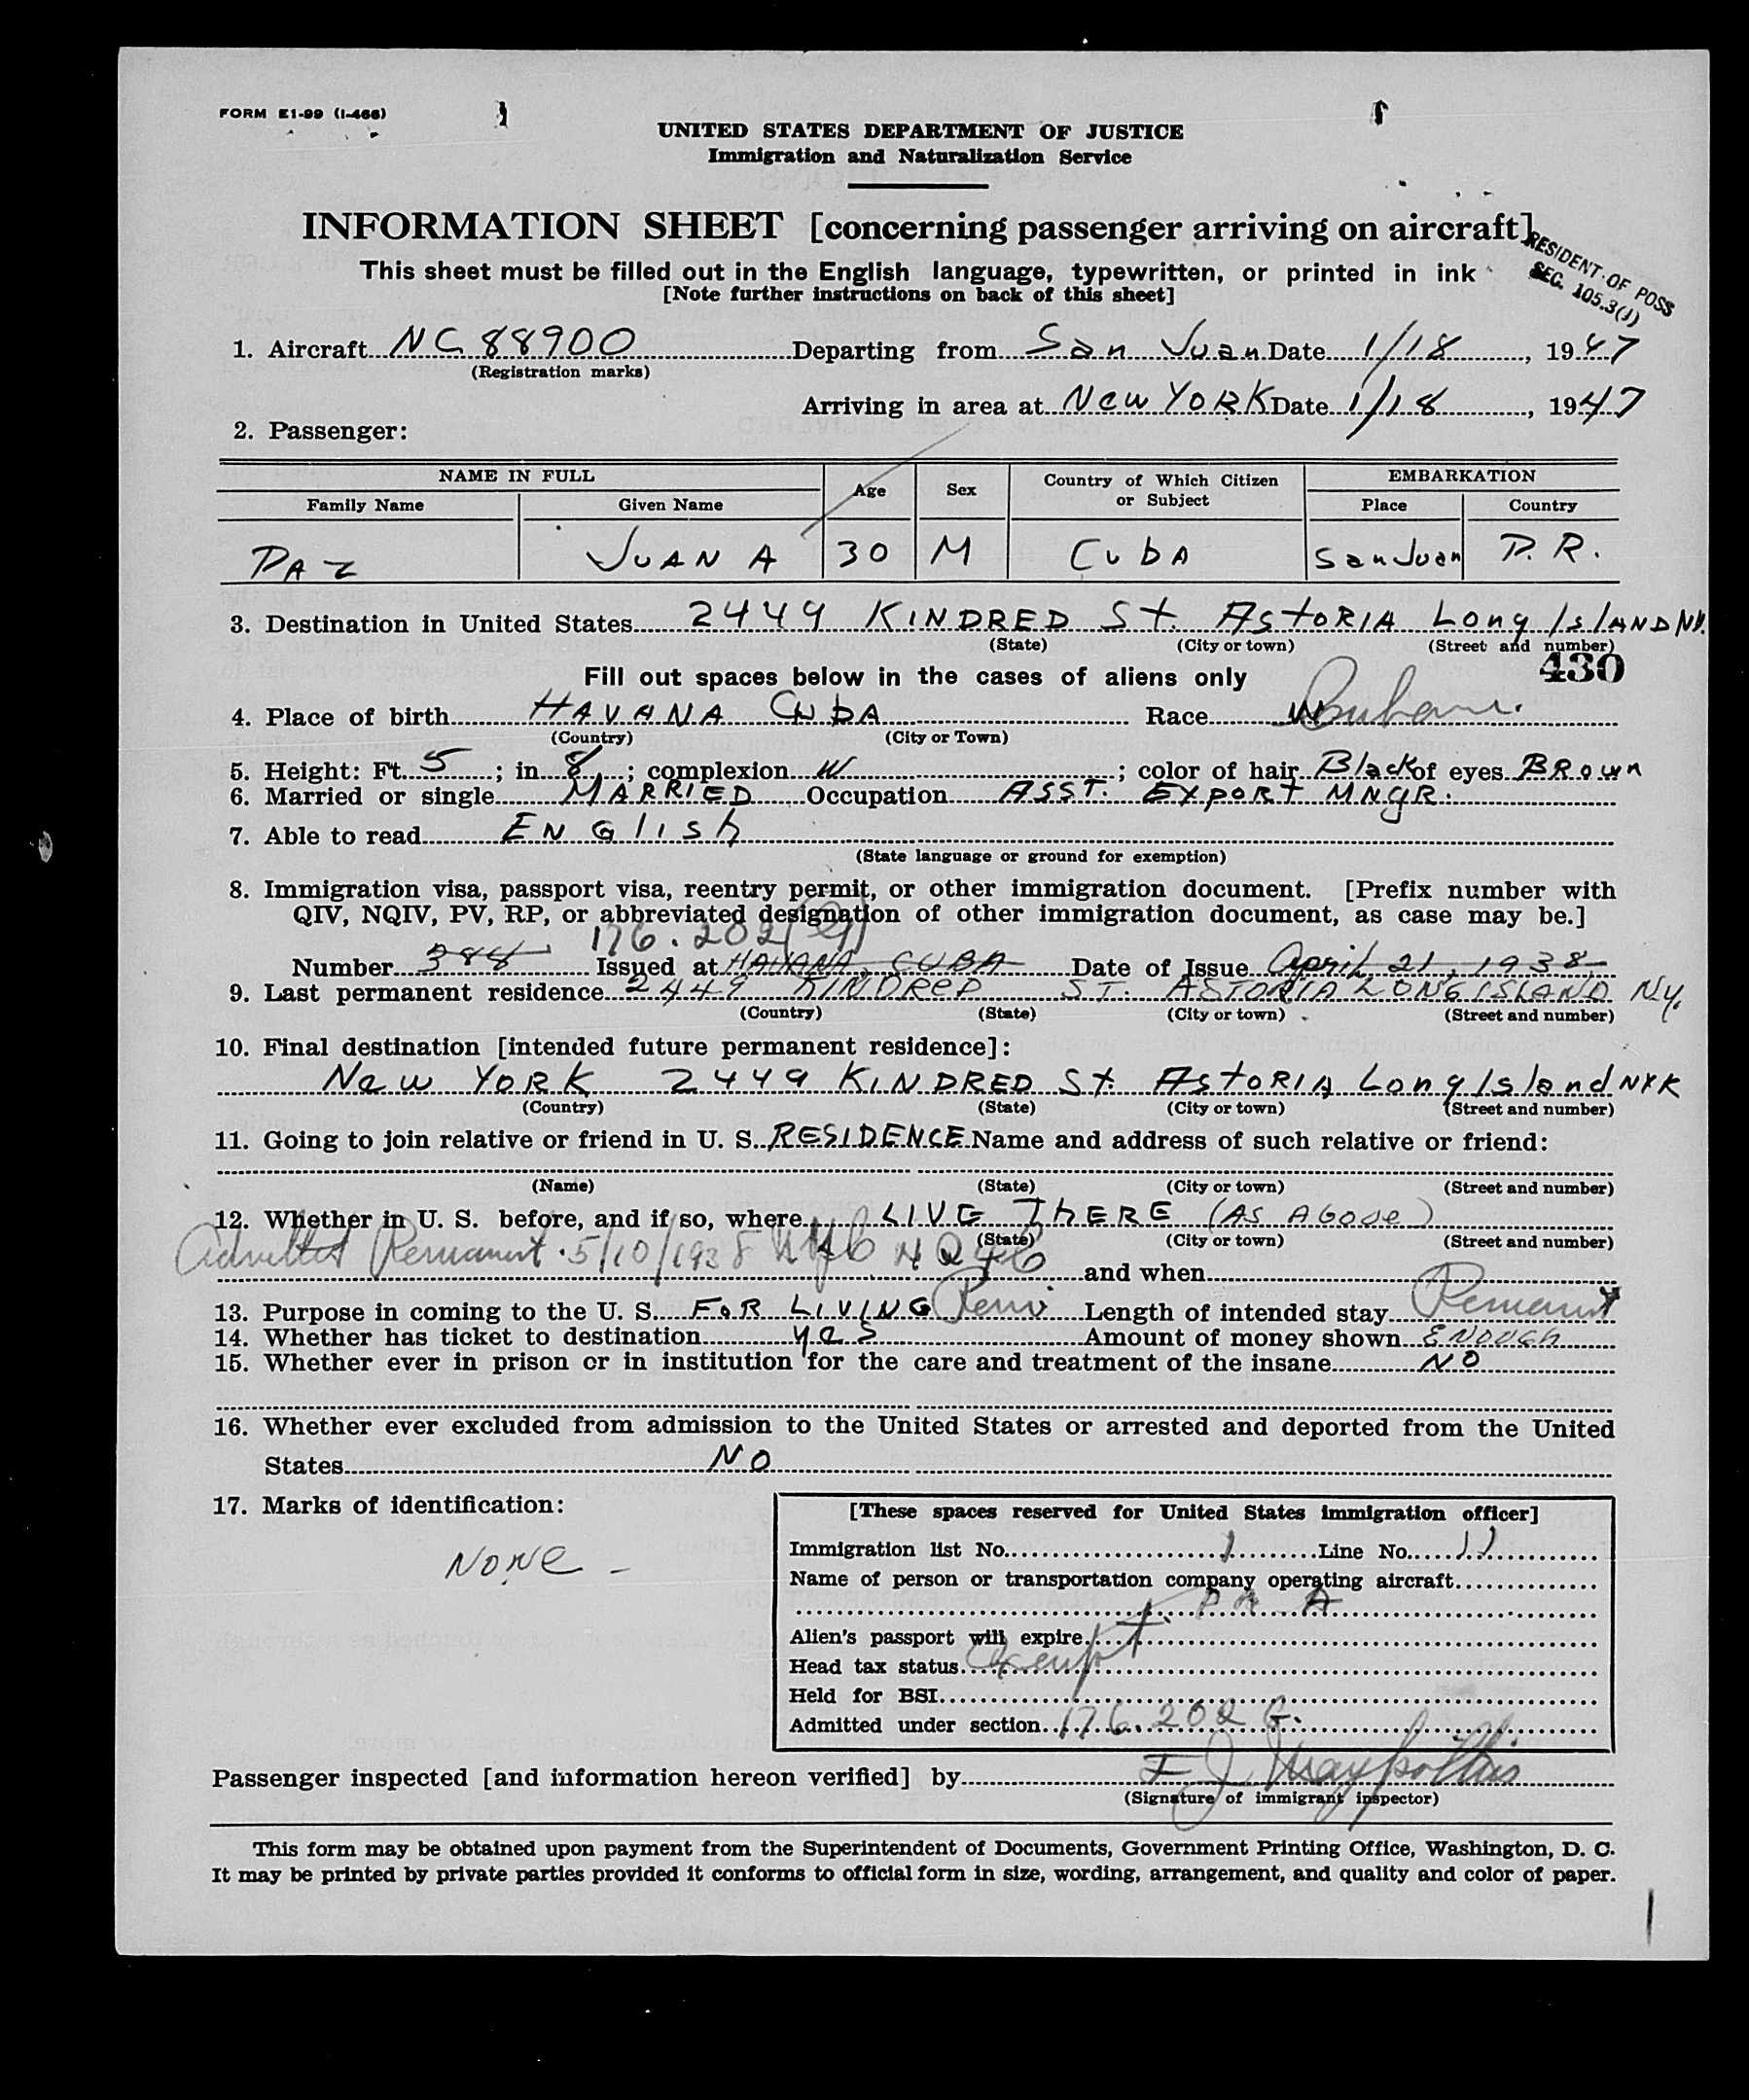 FORM E1-99 (I-466)
UNITED STATES DEPARTMENT OF JUSTICE
Immigration and Naturalization Service
INFORMATION SHEET [concerning passenger arriving on aircraft]
RESIDENT OF POSS
SEC. 105.3(J)
This sheet must be filled out in the English language, typewritten, or printed in ink
[Note further instructions on back of this sheet]
1. Aircraft NC 88900 Departing from San Juan Date 1/18, 1947
(Registration marks)
Arriving in area at New YORK Date 1/18, 1947
2. Passenger:
NAME IN FULL Age Sex Country of Which Citizen or Subject EMBARKATION
Family Name Given Name Place Country
PAZ JUAN A 30 M CubA San Juan P. R.
3. Destination in United States 2449 KINDRED St. AStORIA Long IslAND NY.
(State) (City or town) (Street and number)
430
Fill out spaces below in the cases of aliens only
4. Place of birth HAVANA CubA Race W Cuban.
(Country) (City or Town)
5. Height: Ft. 5; in. 8; complexion W; color of hair Black of eyes BRown
6. Married or single MARRIED Occupation ASST. EXPORT MNGR.
7. Able to read ENGlish
(State language or ground for exemption)
8. Immigration visa, passport visa, reentry permit, or other immigration document. [Prefix number with
QIV, NQIV, PV, RP, or abbreviated designation of other immigration document, as case may be.]
176.202(G)
Number 388 Issued at HAVANA, CUBA Date of Issue April 21, 1938
9. Last permanent residence 2449 KINDRED ST. ASTORIA LONG ISLAND NY.
(Country) (State) (City or town) (Street and number)
10. Final destination [intended future permanent residence]:
New YORK 2449 KINDRED St. AStORIA Long Island NYK
(Country) (State) (City or town) (Street and number)
11. Going to join relative or friend in U. S. RESIDENCE Name and address of such relative or friend:
(Name) (State) (City or town) (Street and number)
12. Whether in U. S. before, and if so, where LIVE ThERE (AS ABOVE)
(State) (City or town) (Street and number)
Admitted Permanent. 5/10/1938 and when
13. Purpose in coming to the U. S. FOR LIVING Perm Length of intended stay Permanent
14. Whether has ticket to destination yes Amount of money shown ENOUGH
15. Whether ever in prison or in institution for the care and treatment of the insane NO
16. Whether ever excluded from admission to the United States or arrested and deported from the United
States NO
17. Marks of identification:
NONE -
[These spaces reserved for United States immigration officer]
Immigration list No. 1 Line No. 11
Name of person or transportation company operating aircraft
P A A
Alien's passport will expire
Head tax status Exempt
Held for BSI
Admitted under section 176.202 G.
Passenger inspected [and information hereon verified] by
(Signature of immigrant inspector)
This form may be obtained upon payment from the Superintendent of Documents, Government Printing Office, Washington, D. C.
It may be printed by private parties provided it conforms to official form in size, wording, arrangement, and quality and color of paper.